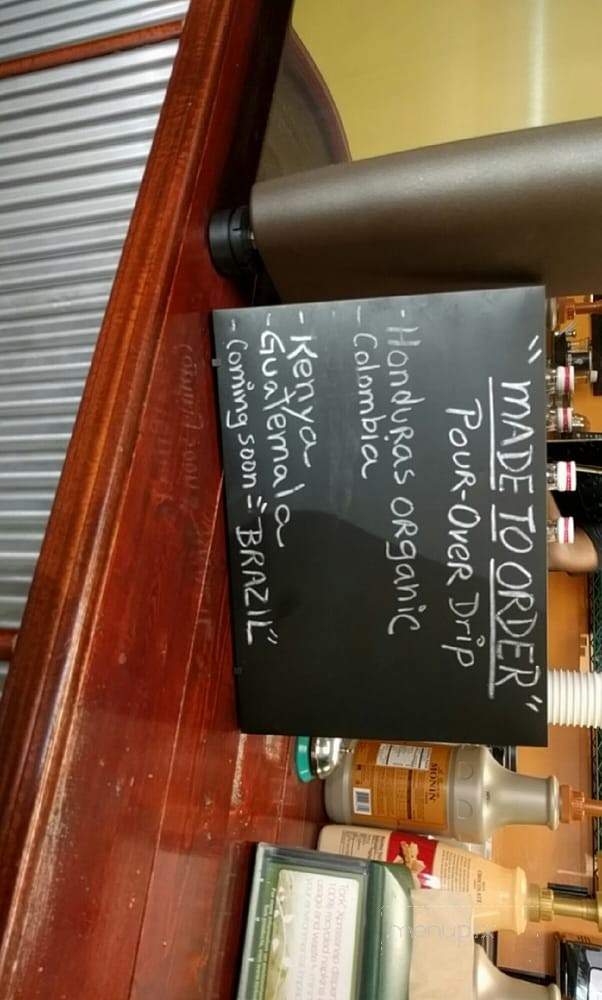 "MADE TO ORDER"
POUR-OVER Drip
- Honduras ORganic
- Colombia
- Kenya
- Guatemala
- Coming soon = "BRAZIL"
MONIN
Tork Xpressnap
menupix